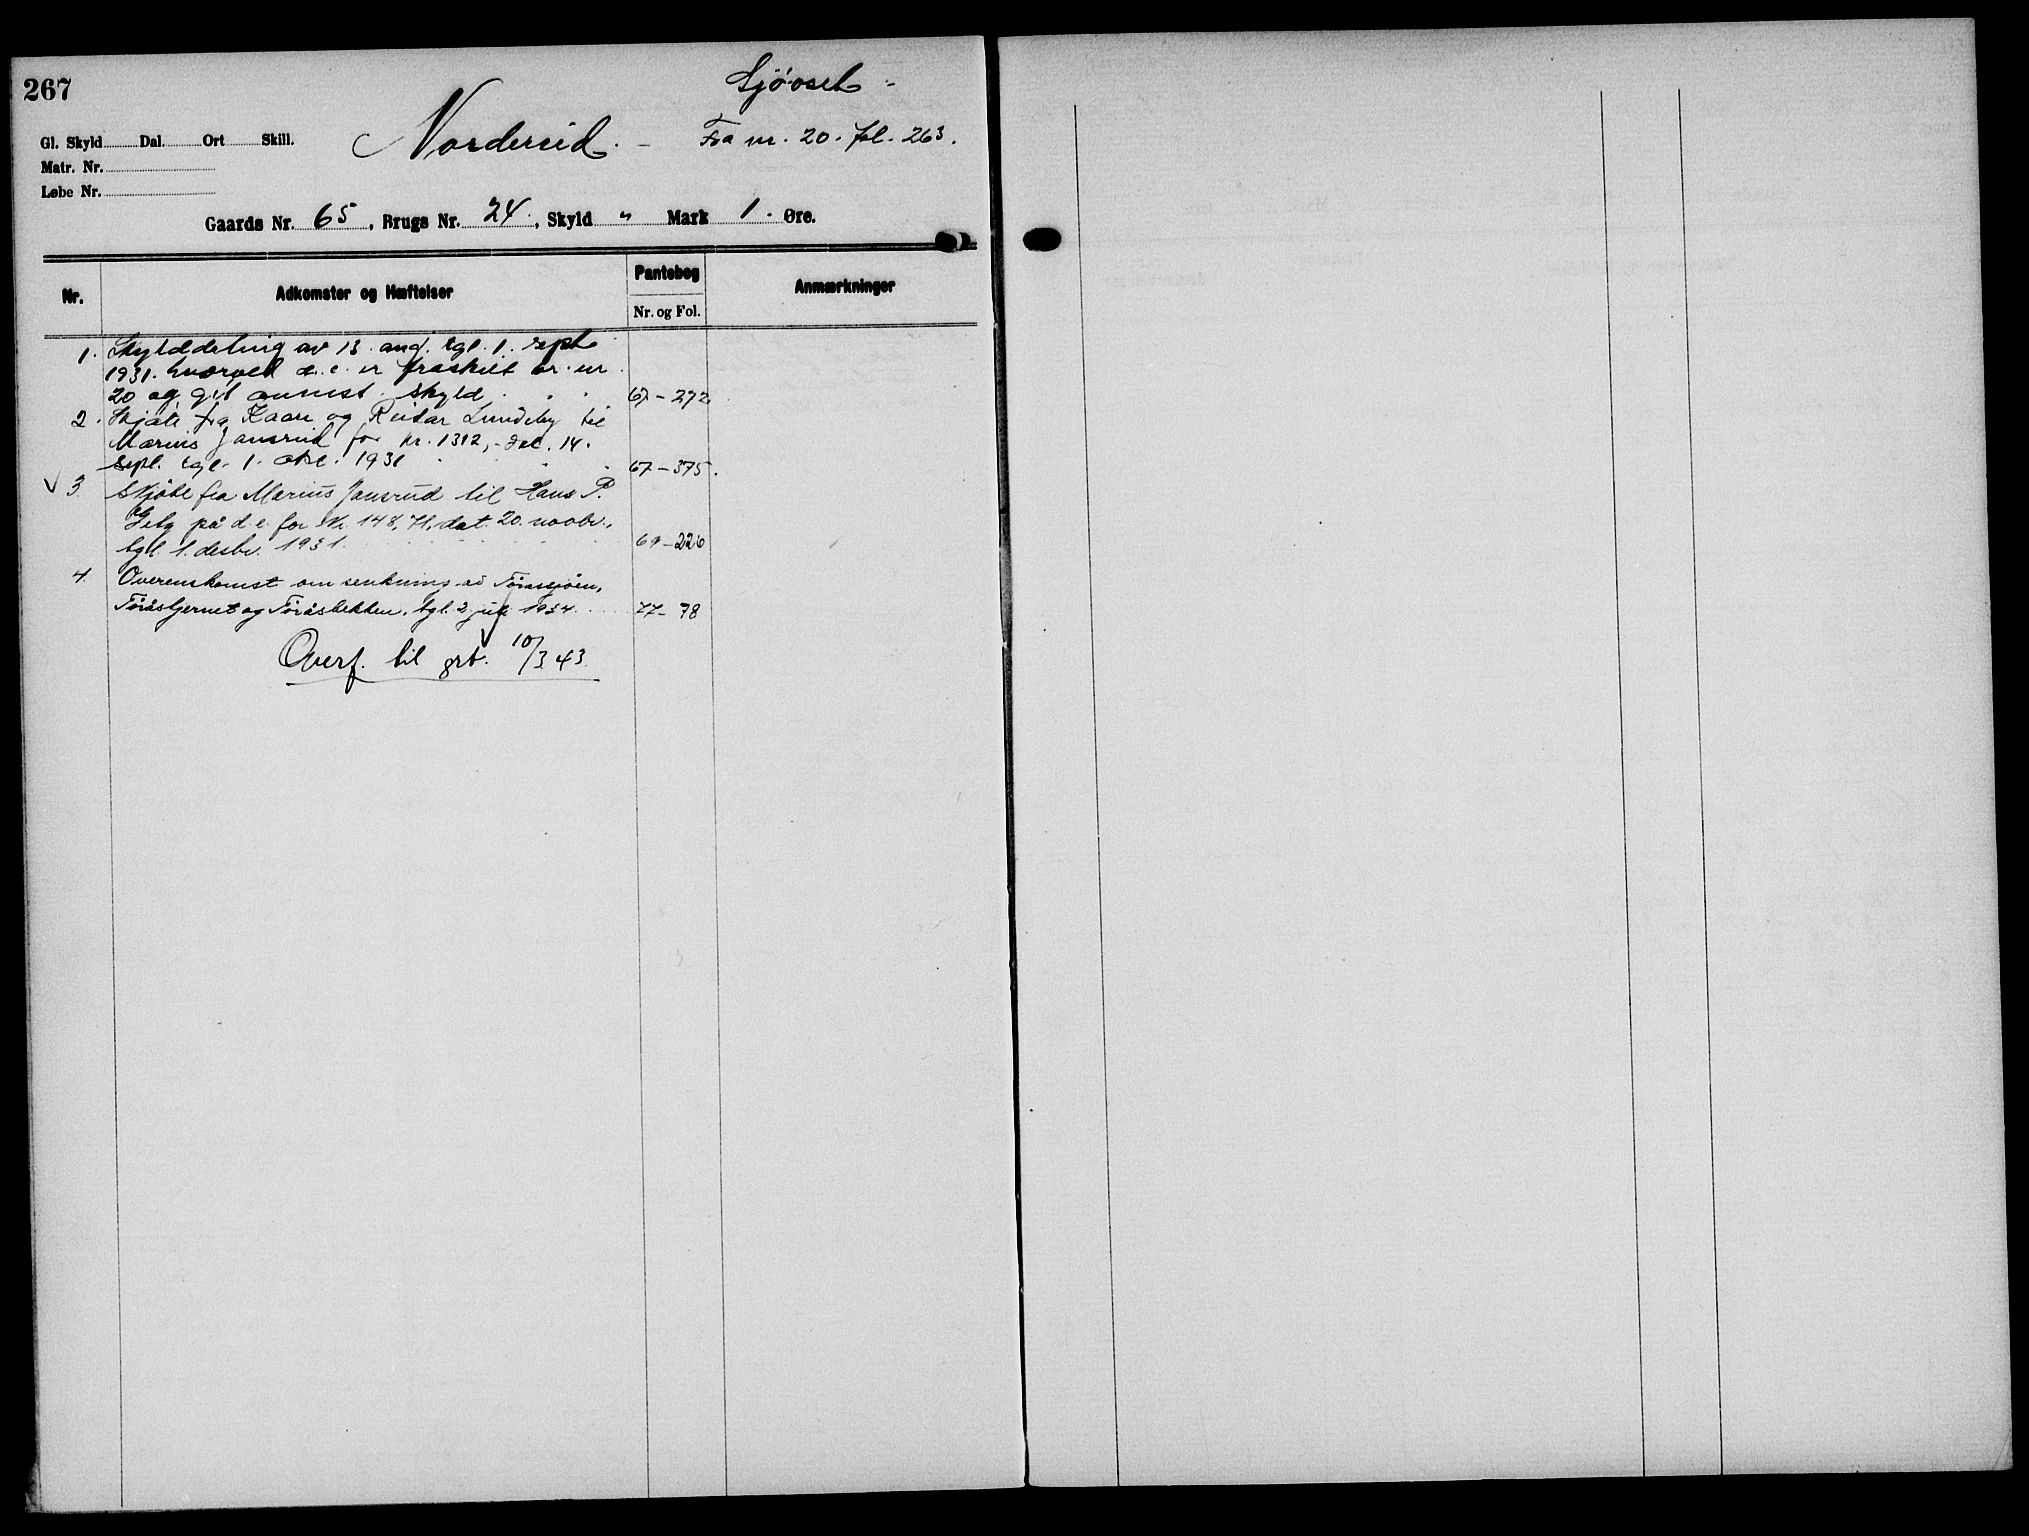 267
Sjöoset -
Nordereid. - Fra nr. 20. fol. 263.
Gl. Skyld Dal. Ort Skill.
Matr. Nr.
Løbe Nr.
Gaards Nr. 65, Brugs Nr. 24., Skyld " Mark 1. Øre.
Nr. Adkomster og Hæftelser Pantebog Anmærkninger
Nr. og Fol.
1. Skylddeling av 13. aug. tgl. 1. sept
1931. hvorved d. e. er fraskilt br. nr.
20 og git anmst. skyld . . . 67-272.
2. Skjøte fra Kaare og Reidar Lundeby til
Marius Jansrud for kr. 1312,- dat. 14.
sept. tgl. 1. okt. 1931 . . . 67-375.
√ 3. Skjøte fra Marius Jansrud til Hans P.
på d. e. for kr. 148,71, dat. 20. novbr.,
tgl. 1. desbr. 1931. 69-226
4. Overenskomst om senkning av Toråssjøen,
Toråstjernet og Toråsbekken, tgl. 2. juli 1934. 77-78
Overf. til grb. 10/3 43.